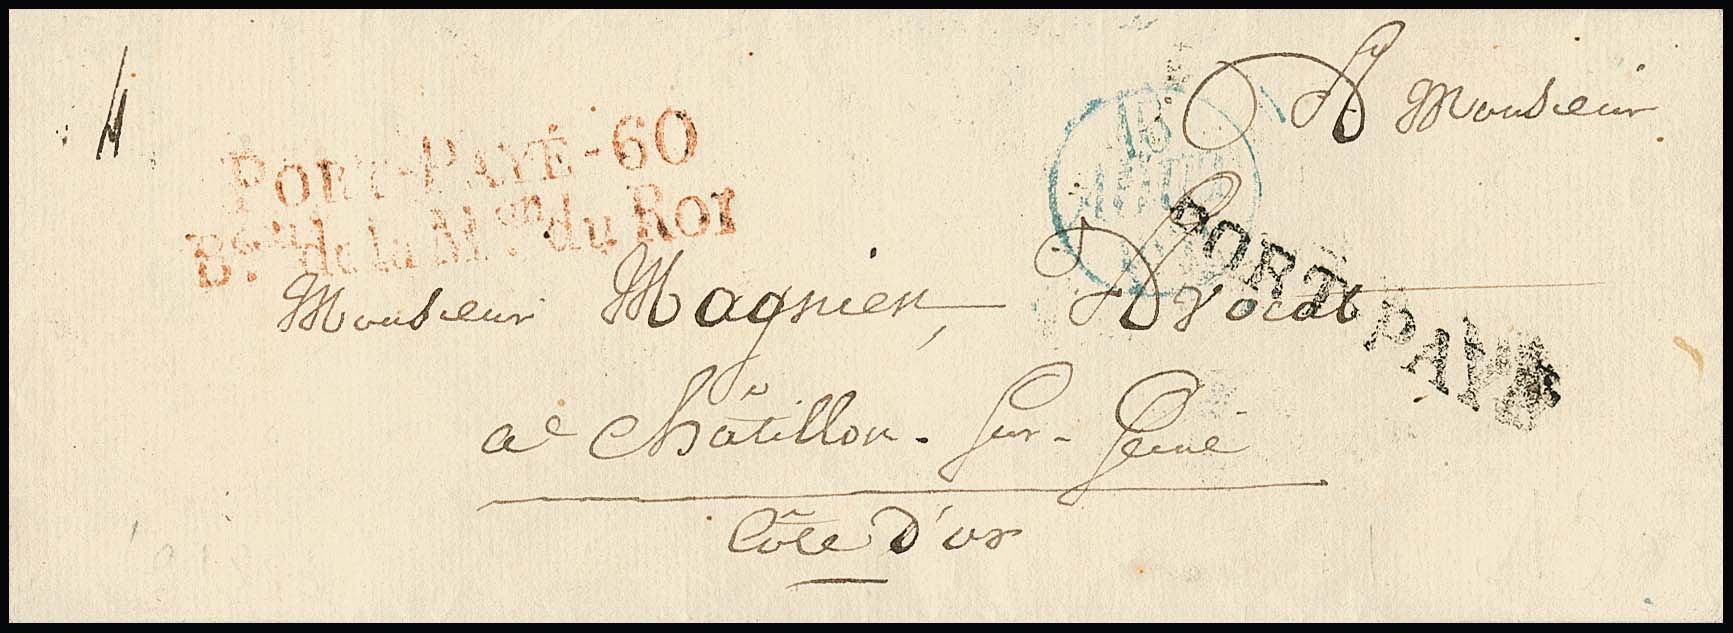 A Monsieur
PORT-PAYÉ-60
Bau de la Mon du Roi
18
PORT PAYÉ
Monsieur Magnien, Avocat
a Châtillon-Sur-Seine
Côte D'or